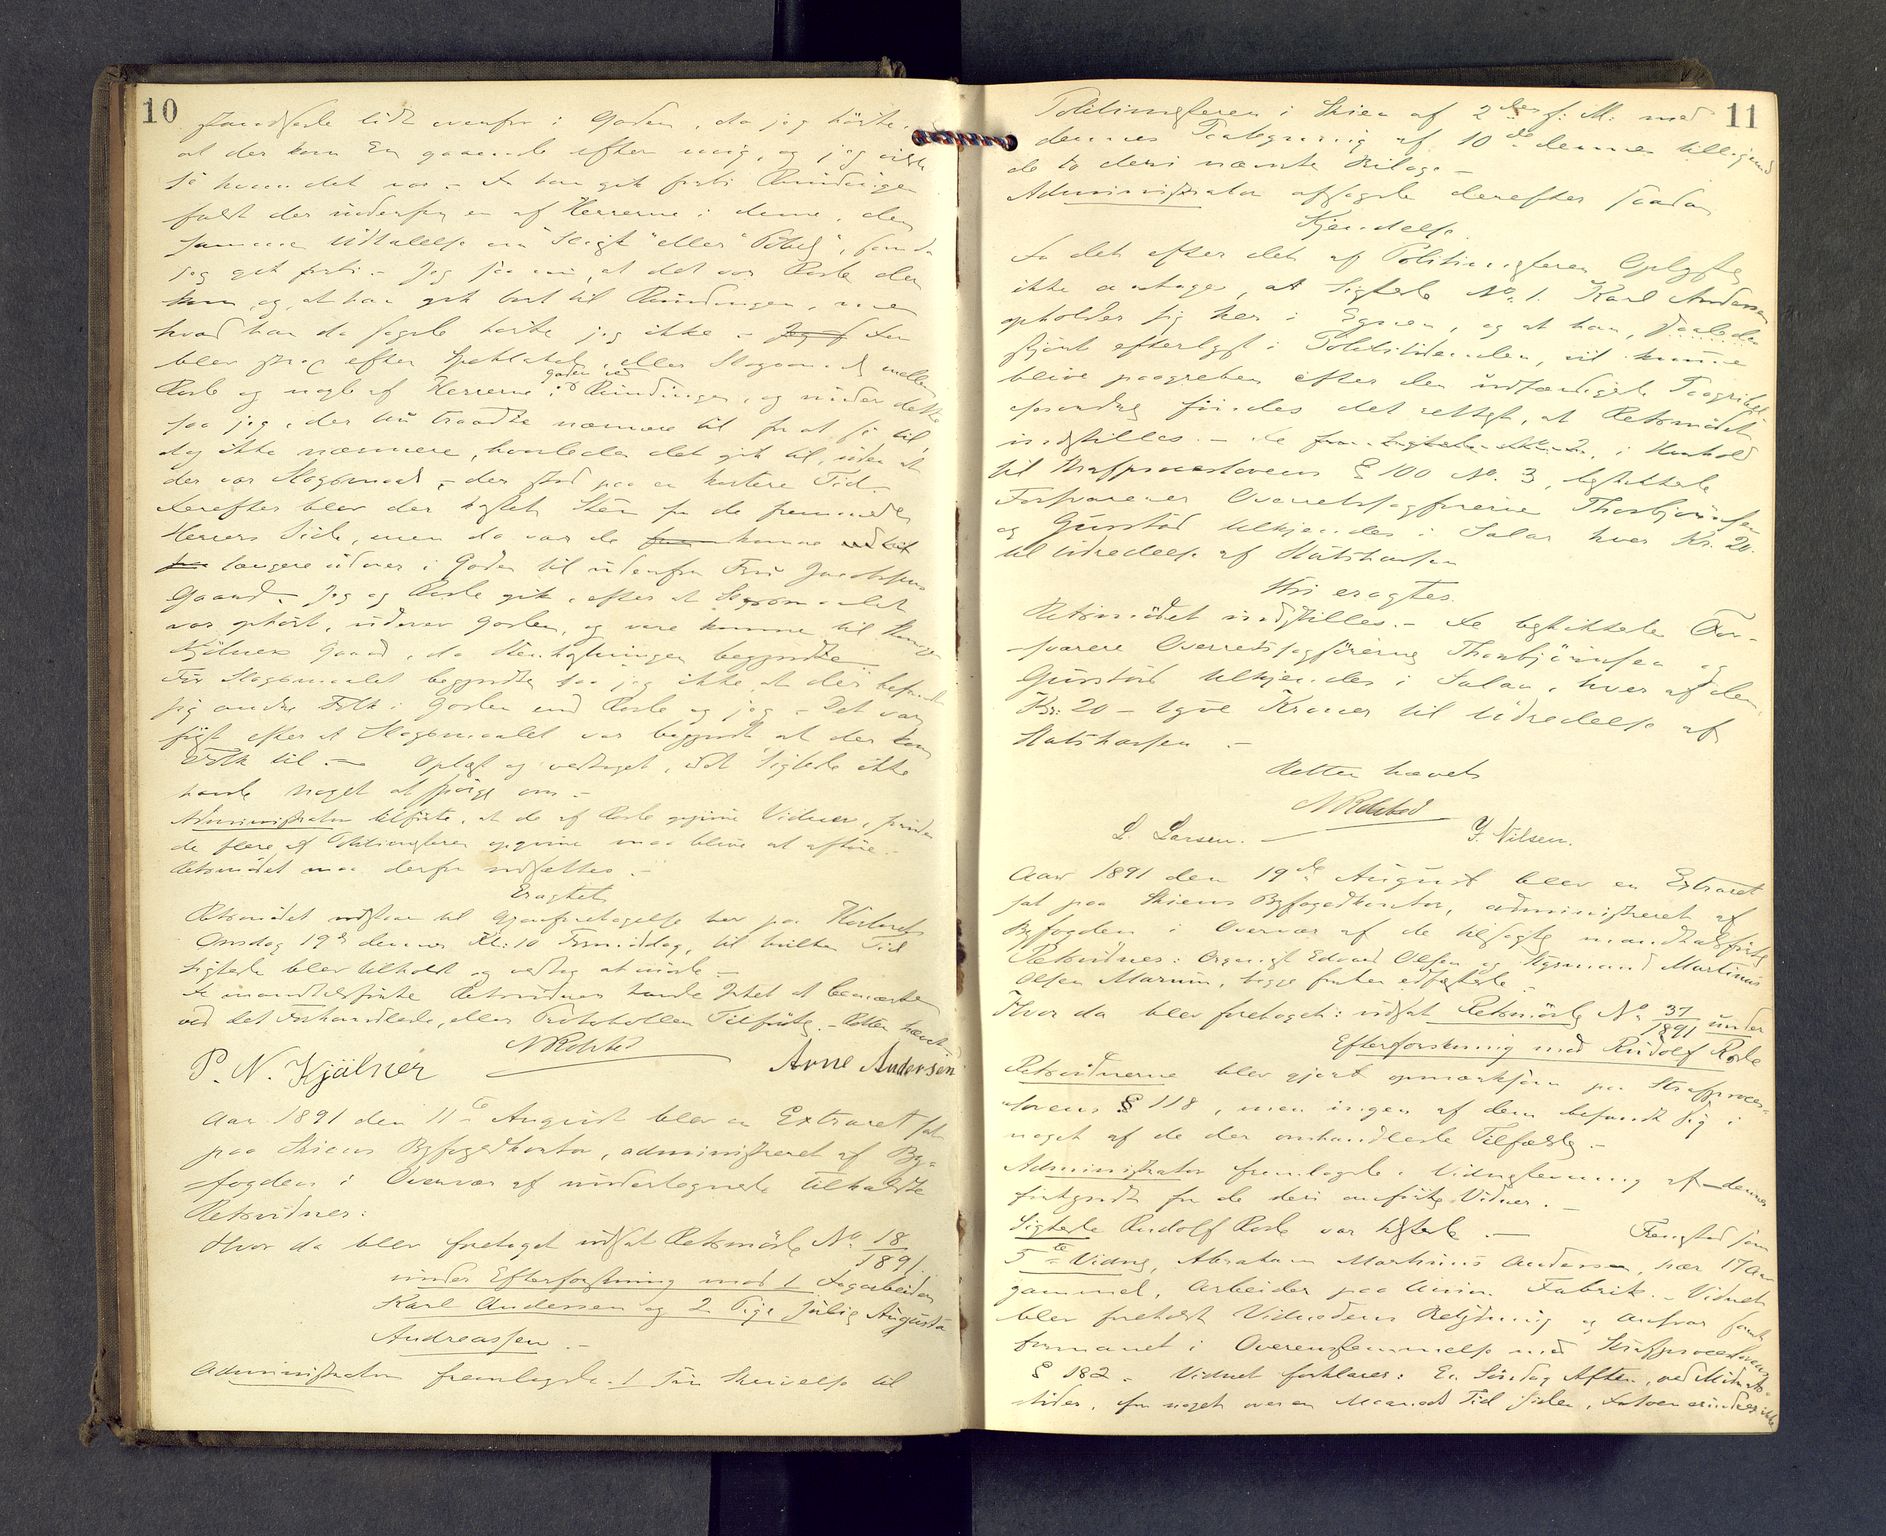 10
lidt ovenfor i Gaden, da jeg hørte,
at der kom En gaaende efter mig, og jeg vilde
sé hvem det var. – Da han gik forbi Rundingen
faldt der udenfor en af Herrerne i denne, den
samme Udtalelse om "Sligt" eller "Pøbel", som da
jeg gik forbi. – Jeg saa nu, at det var Rosle der
kom, og, at han gik bort til Rundingen, men
hvad han da sagde hørte jeg ikke. – Jeg Der
blev strax efter Spektakel, eller Slagsmaal mellem
gaden ved
Rosle og nogle af Herrerne i Rundingen, og under dette
saa jeg, der nu traadte nærmere til for at sé til,
dog ikke nærmere, hvorledes det gik til, uden at
der var Slagsmaal, – der stod paa en kortere Tid. –
Derefter blev der kastet Sten fra de fremmede
Herrers Side, men da var de komne
længere udover i Gaden til udenfor Fru Jacobsens
Gaard. – Jeg og Rosle gik, efter at Slagsmaalet
var ophört, udover Gaden, og vare komne til
Kjölners Gaard, da Stenkastningen begyndte.
Før Slagsmaalet begyndte saa jeg ikke, at der befandt
sig andre Folk i Gaden end Rosle og jeg. – Det var
først efter at Slagsmaalet var begyndt at der kom
Folk til. – Oplæst og vedtaget, idet Sigtede ikke
havde noget at spörge om. –
Administrator tilførte, at de af Rosle opgivne Vidner, foruden
de flere af Politimesteren opgivne maa blive at afhøre. –
Retsmødet maa derfor udsættes. –
Eragtet
Retsmødet udstaar til Gjenforetagelse her paa Kontoret
Onsdag 19de dennes Kl: 10 Formiddag, til hvilken Tid
Sigtede blev tilholdt og vedtog at møde. –
De mandtalsførte Retsvidner havde Intet at bemærke
ved det Forhandlede, eller Protokollens Tilførte. – Retten hævet.
NRolstad
P. N. Kjølner Arne Andersen
Aar 1891 den 11te August blev en Extraret sat
paa Skiens Byfogedkontor, administreret af By-
fogden i Overvær af undertegnede tilkaldte
Retsvidner:
Hvor da blev foretaget udsat Retsmøde No. 18/1891.
under Efterforskning mod 1. Sagarbeider
Karl Andersen og 2. Pige Julie Augusta
Andreassen. –
Administrator fremlagde. 1 Sin Skrivelse til
11
Politimesteren i Skien af 2den f: M: med
dennes Paategning af 10de dennes tilligemed
de to deri nævnte Bilage –
Administrator afsagde derefter saadan
Kjendelse.
Da det efter det af Politimesteren Oplyste
ikke antages, at Sigtede No. 1. Karl Andersen
opholder sig her i Egnen, og at han, saaledes
efterlyst i Politidenden, vil kunne
blive paagreben efter den udfærdigede Paagribelses-
ordre findes det rettest, at Retsmødet
indstilles. – De i Henhold
til Straffproceslovens § 100 No. 3, beskikkede
Forsvarere Overretssagførerne Thorbjørnsen
og Gurstad tilkjendes i Salær hver Kr. 20.
til Udredelse af Statskassen
Thi eragtes.
Retsmødet indstilles. – De beskikkede For-
svarere Overretssagførerne Thorbjørnsen og
Gurstad tilkjendes i Salær, hver af dem
Kr: 20 – tyve Kroner til Udredelse af
Statskassen. –
Retten hævet
NRolstad
L. Larsen. – Y. Nilsen.
Aar 1891 den 19de August blev en Extraret
sat paa Skiens Byfogedkontor, administreret af
Byfogden i Overvær af de tilsagte mandtalsførte
Retsvidner: Edvard Olsen og Martinus
Olsen Marum, begge før edfæstede. –
Hvor da blev foretaget: udsat Retsmøde No 37/1891 under
Efterforskning mod Rudolf Rosle
Retsvidnerne blev gjort opmærksom paa Straffproces-
lovens § 118, men ingen af dem befandt sig i
noget af de der omhandlede Tilfælde. –
Administrator fremlagde. Vidnestevning af dennes
forkyndt for de deri anførte Vidner. –
Sigtede Rudolf Rosle var tilstede. – Fremstod som
5te Vidne, Abraham Martinius Andersen, nær 17 Aar
gammel, Arbeider paa Union Fabrik. – Vidnet
blev foreholdt Vidneedens Betydning og Ansvar samt
formanet i Overensstemmelse med Straffproceslovens
§ 182. – Vidnet forklarer: En Söndag Aften, ved Midnats-
tider, for noget over en Maaneds Tid siden, Datoen erindres ikke